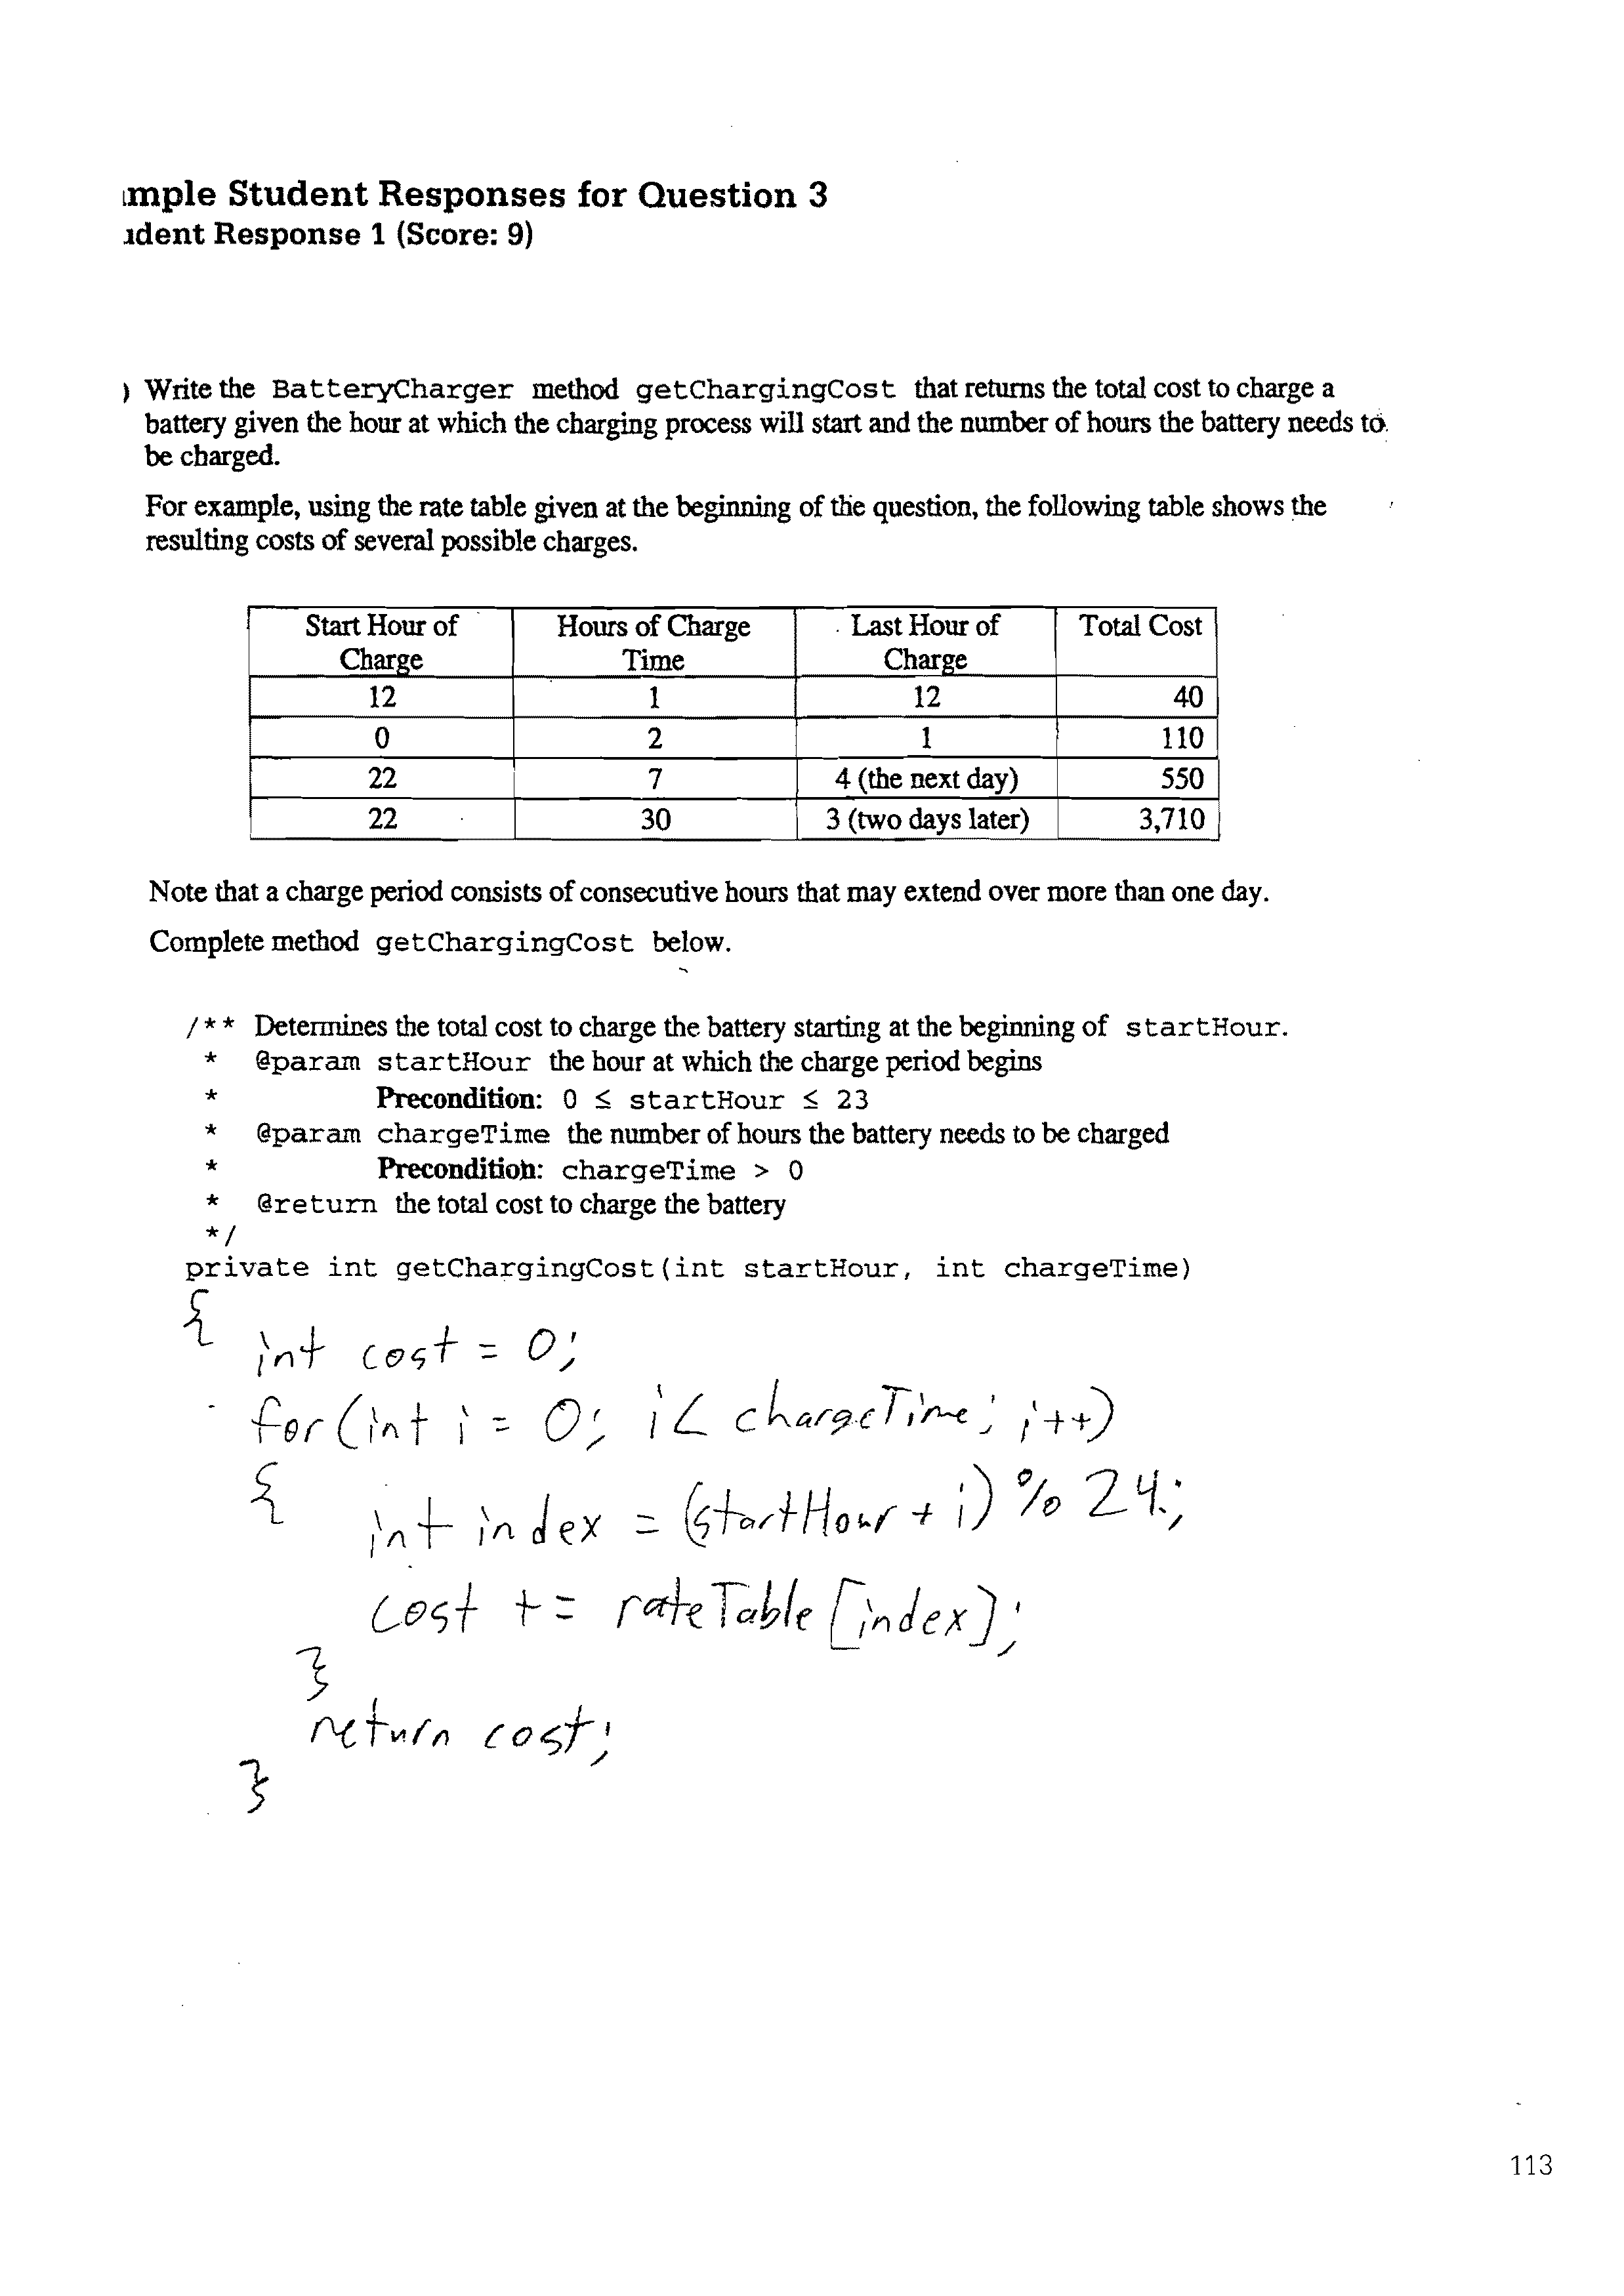 mple Student Responses for Question 3
dent Response 1 (Score: 9)
) Write the BatteryCharger method getChargingCost that returns the total cost to charge a
battery given the hour at which the charging process will start and the number of hours the battery needs to
be charged.
For example, using the rate table given at the beginning of the question, the following table shows the
resulting costs of several possible charges.
Start Hour of Charge | Hours of Charge Time | Last Hour of Charge | Total Cost
12 | 1 | 12 | 40
0 | 2 | 1 | 110
22 | 7 | 4 (the next day) | 550
22 | 30 | 3 (two days later) | 3,710
Note that a charge period consists of consecutive hours that may extend over more than one day.
Complete method getChargingCost below.
/** Determines the total cost to charge the battery starting at the beginning of startHour.
* @param startHour the hour at which the charge period begins
* Precondition: 0 ≤ startHour ≤ 23
* @param chargeTime the number of hours the battery needs to be charged
* Precondition: chargeTime > 0
* @return the total cost to charge the battery
*/
private int getChargingCost(int startHour, int chargeTime)
{
int cost = 0;
for(int i = 0; i < chargeTime; i++)
{
int index = (startHour + i) % 24;
cost += rateTable[index];
}
return cost;
}
113